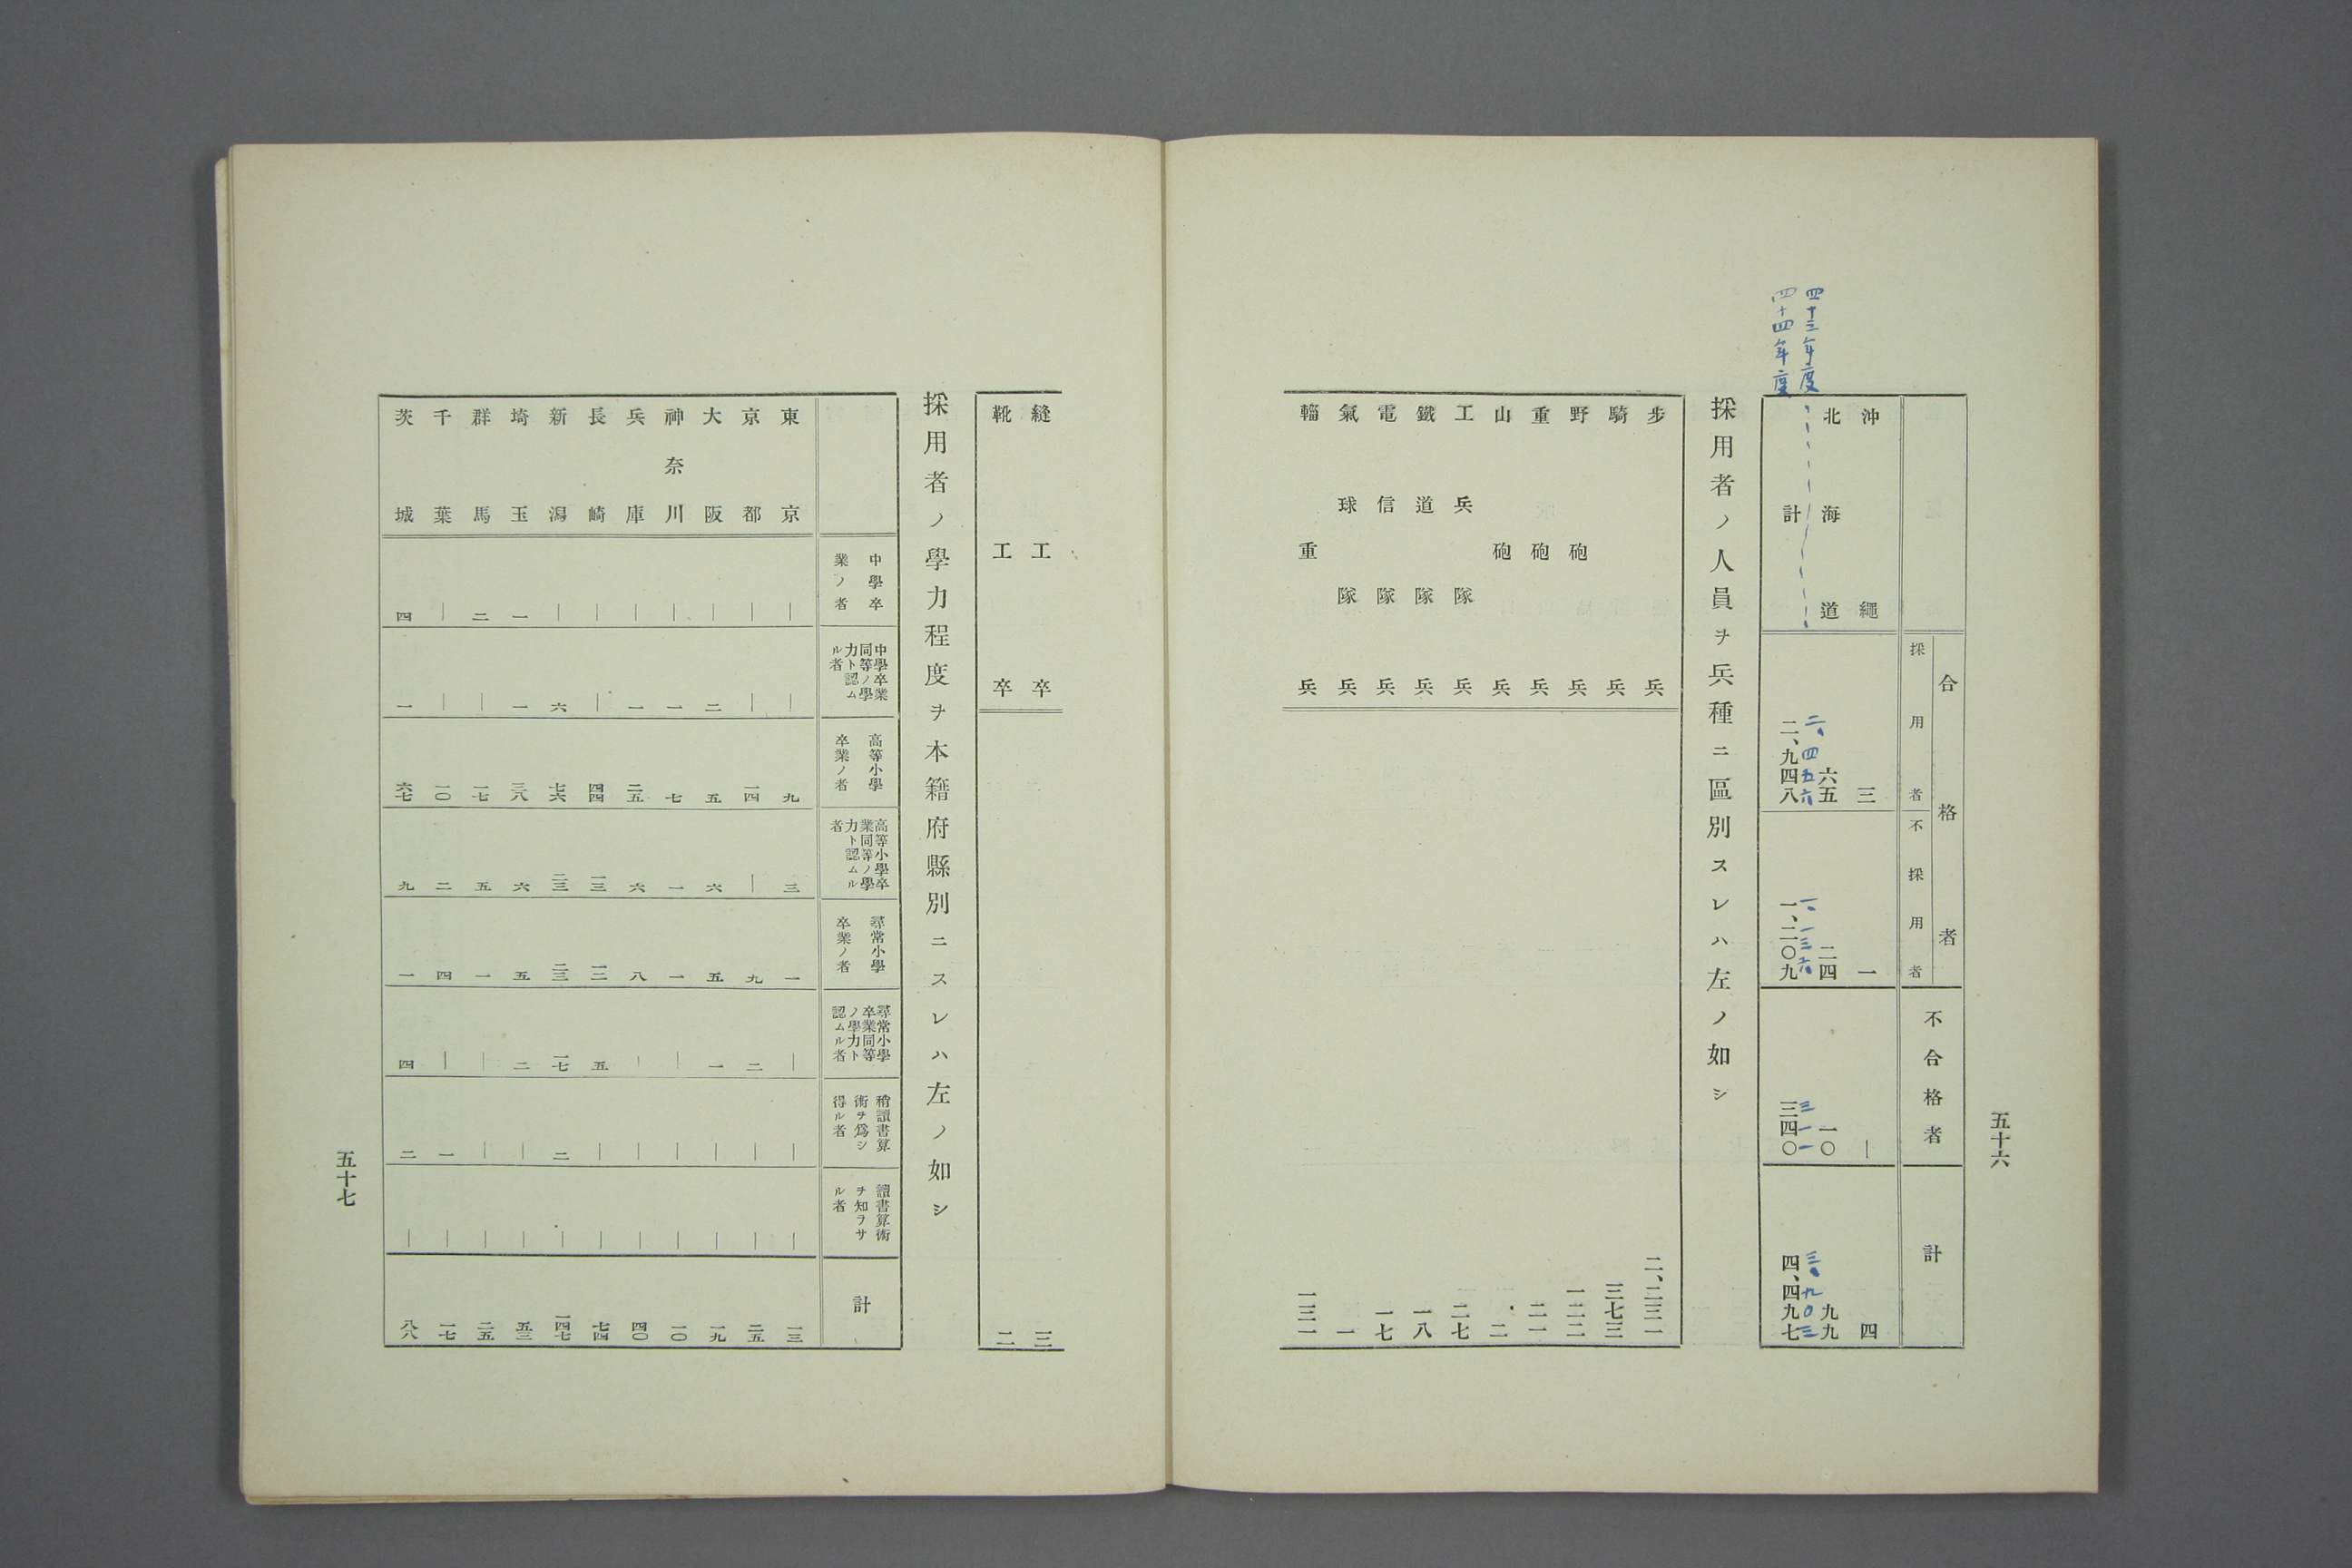 五十六
合格者
採用者
不採用者
不合格者
計
沖繩 三 一 ― 四
北海道 六五 二四 一〇 九九
四十三年度 二、四五六 一、一三六 三一一 三、九〇三
四十四年度 計 二、九四八 一、二〇九 三四〇 四、四九七
採用者ノ人員ヲ兵種ニ區別スレハ左ノ如シ
步兵 二、二三一
騎兵 三七三
野砲兵 一二二
重砲兵 二一
山砲兵 二
工兵隊兵 二七
鐵道隊兵 一八
電信隊兵 一七
氣球隊兵 一
輜重兵 一三一
縫工卒 三
靴工卒 二
採用者ノ學力程度ヲ本籍府縣別ニスレハ左ノ如シ
中學卒
業ノ者
中學卒業
同等ノ學
力ト認ム
ル者
高等小學
卒業ノ者
高等小學卒
業同等ノ學
力ト認ムル
者
尋常小學
卒業ノ者
尋常小學
卒業同等
ノ學力ト
認ムル者
稍讀書算
術ヲ爲シ
得ル者
讀書算術
ヲ知ラサ
ル者
計
東京 ― ― 九 三 一 ― ― ― 一三
京都 ― ― 一四 ― 九 二 ― ― 二五
大阪 ― 二 五 六 五 一 ― ― 一九
神奈川 ― 一 七 一 一 ― ― ― 一〇
兵庫 ― 一 二五 六 八 ― ― ― 四〇
長崎 ― ― 四四 一三 一二 五 ― ― 七四
新潟 ― 六 七六 二三 二三 一七 二 ― 一四七
埼玉 一 一 三八 六 五 二 ― ― 五三
群馬 二 ― 一七 五 一 ― ― ― 二五
千葉 ― ― 一〇 二 四 ― 一 ― 一七
茨城 四 一 六七 九 一 四 二 ― 八八
五十七